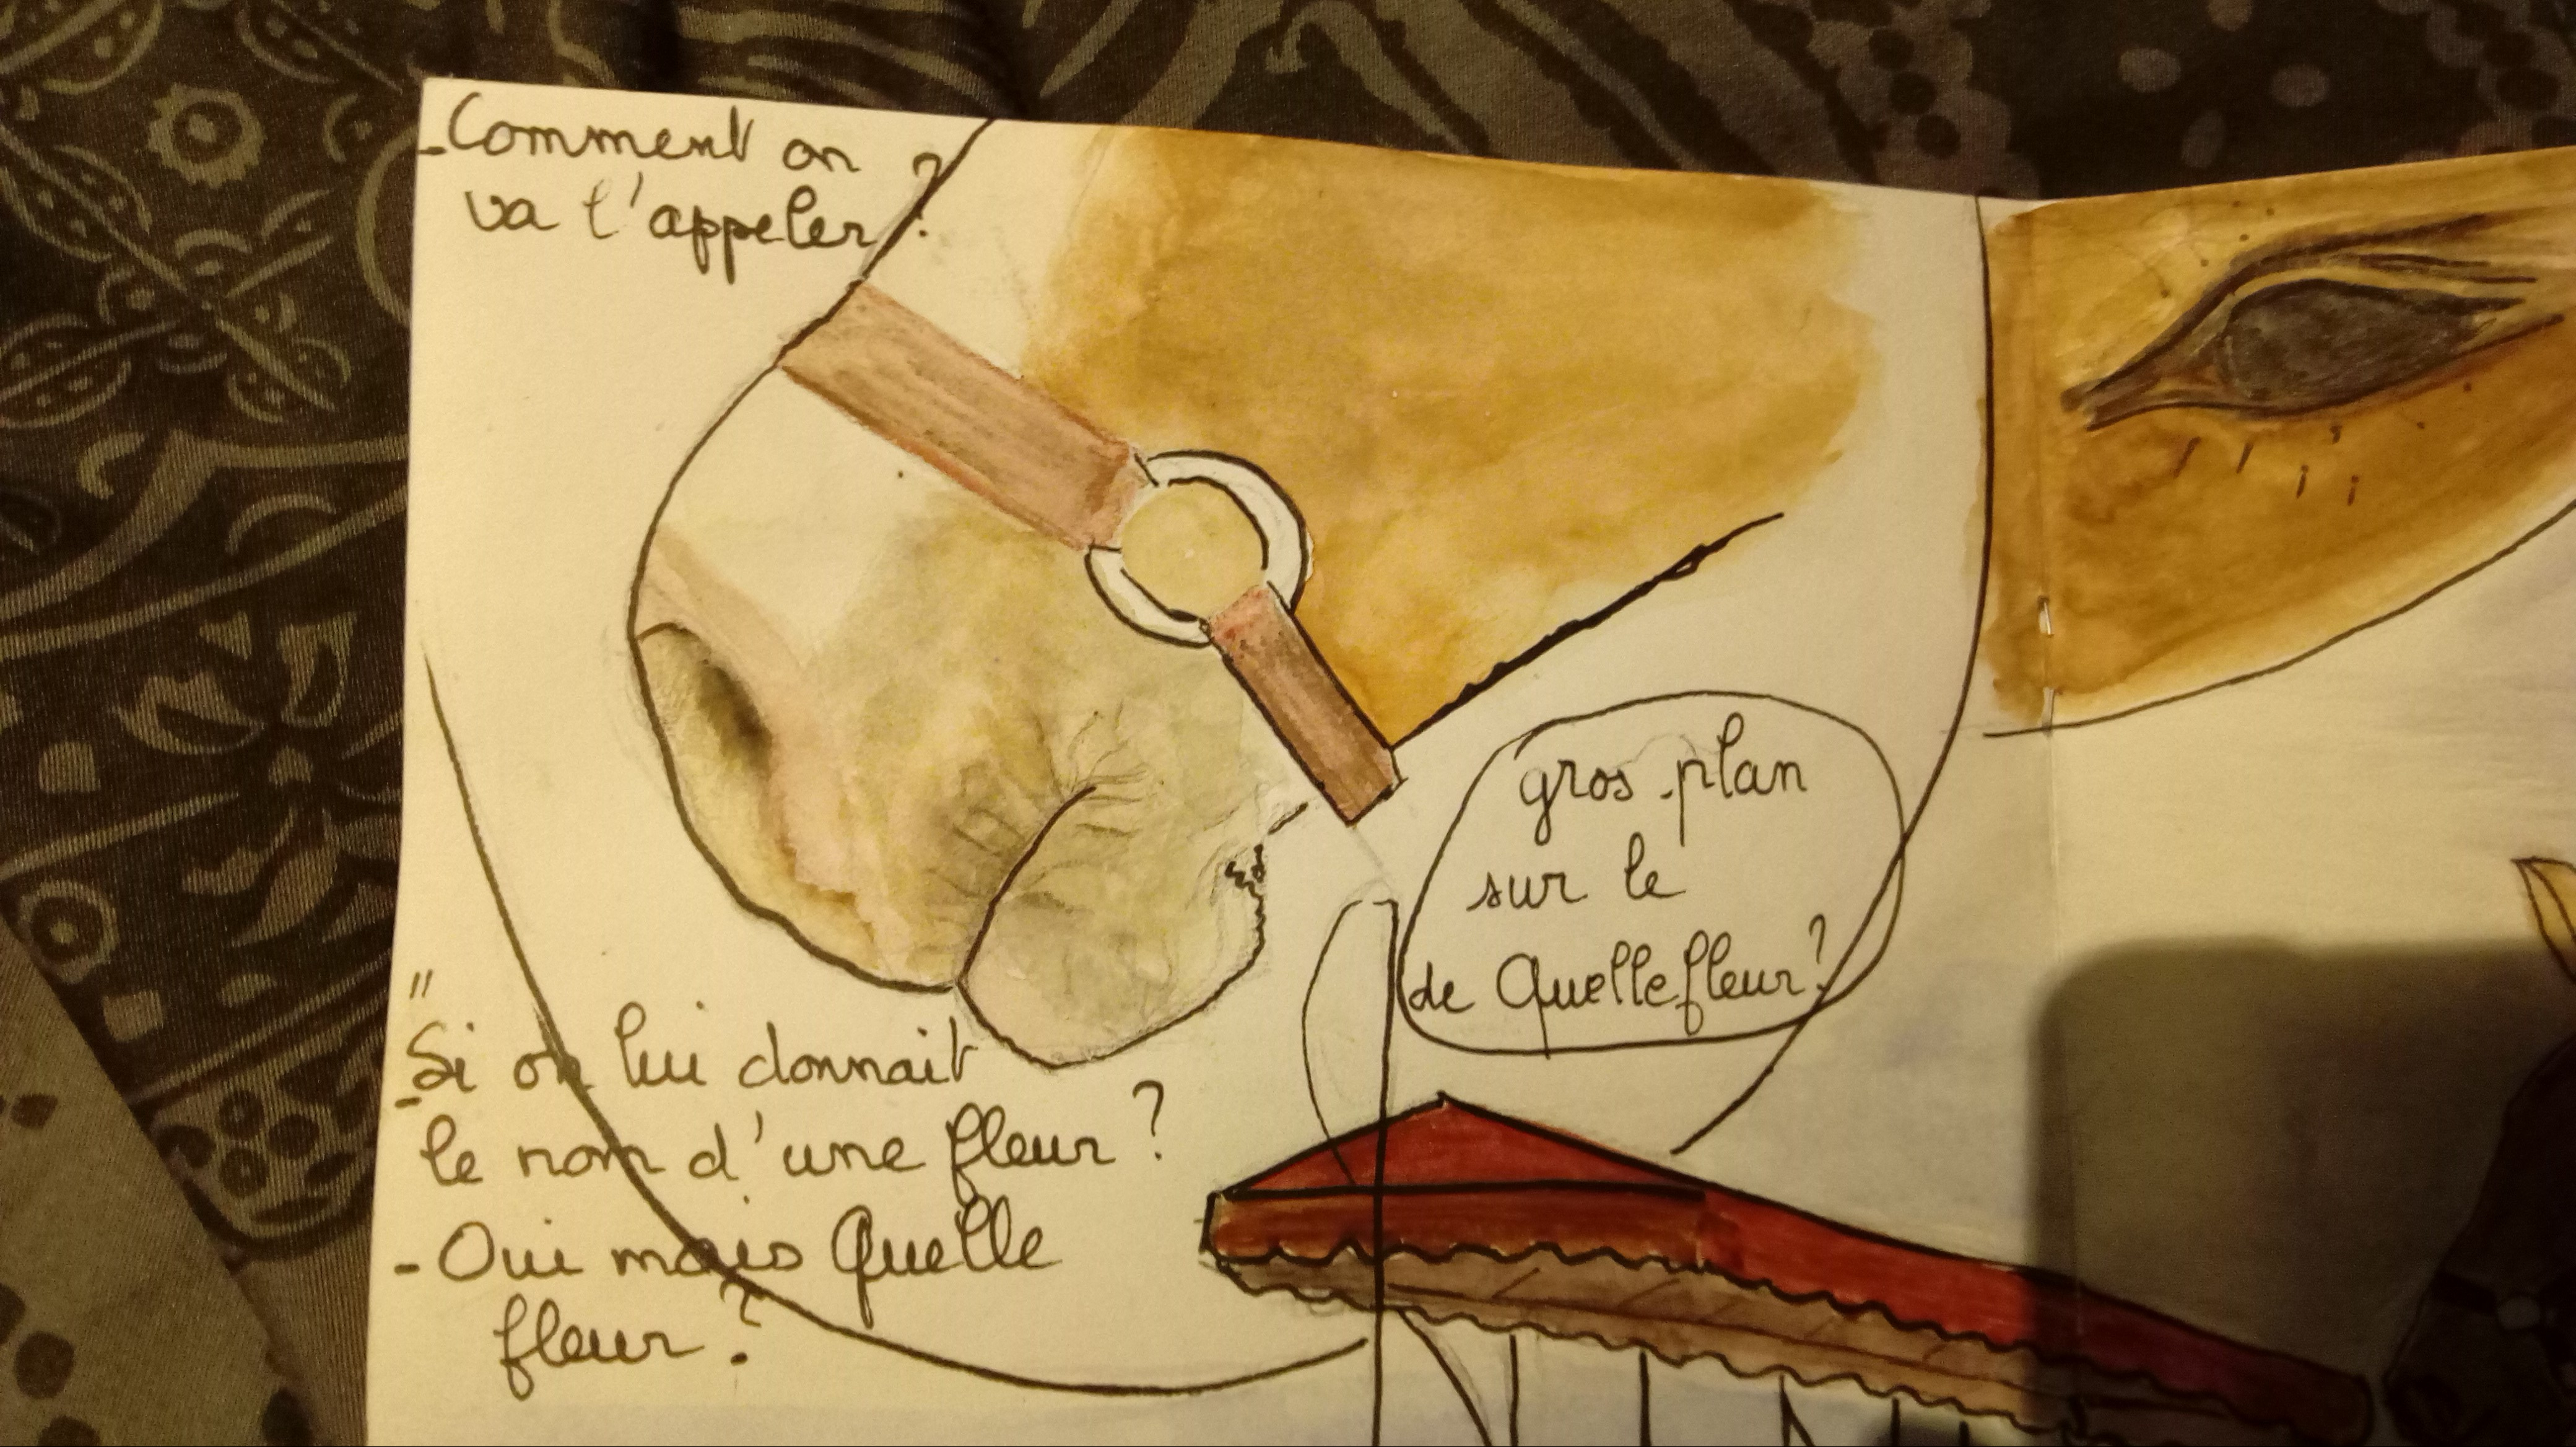 - Comment on
va t'appeler ?
gros plan
sur le
de Quellefleur !
"
- Si on lui donnait
le nom d'une fleur ?
- Oui mais Quelle
fleur ?